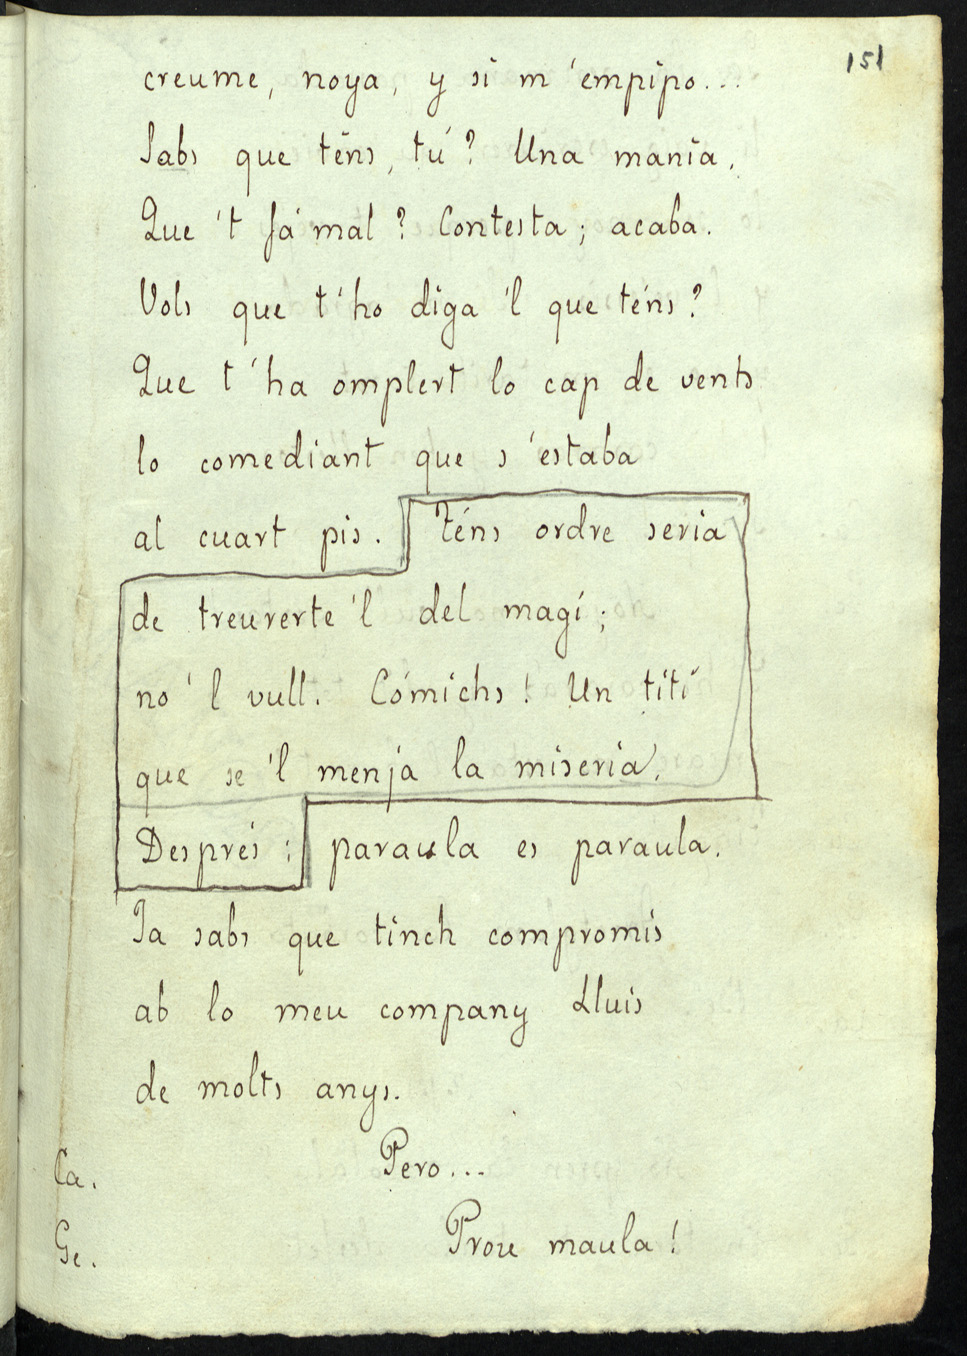 151
creume, noya, y si m'empipo...
Sabs que téns, tú? Una manía.
Que 't fá mal? Contesta; acaba.
Vols que t'ho diga 'l que téns?
Que t'ha omplert lo cap de vents
lo comediant que s'estaba
al cuart pis. Téns ordre seria
de treurerte 'l del magí;
no 'l vull. Cómichs! Un tití
que se 'l menja la miseria.
Després: paraula es paraula.
Ja sabs que tinch compromís
ab lo meu company Lluis
de molts anys.
Ca. Pero...
Ge. Prou maula!